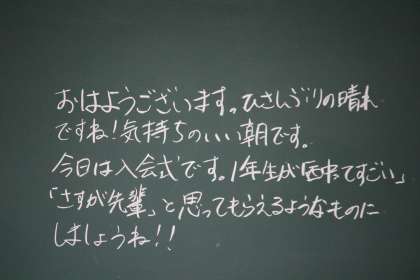 おはようございます。ひさしぶりの晴れ
ですね!気持ちのいい朝です。
今日は入会式です。1年生が「 すごい」
「さすが先輩」と思ってもらえるようなものに
しましょうね!!